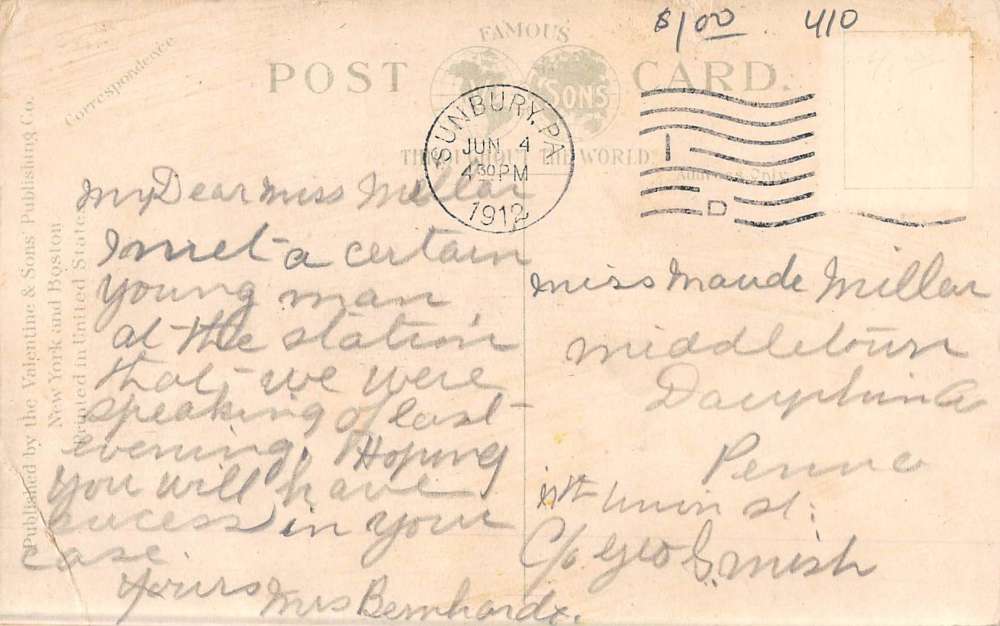 $1.00 410
FAMOUS
POST CARD.
SONS
THROUGHOUT THE WORLD.
Correspondence
Address Only
Published by the Valentine & Sons' Publishing Co.
New York and Boston
Printed in United States
SUNBURY, PA.
JUN 4
4 30 PM
1912
1
D
My Dear Miss Millar
I met a certain
young man
at the station
that we were
speaking of last
evening. Hoping
you will have
sucess in your
case.
Yours Mrs Bernhardt.
Miss Maude Millar
Middletown
Dauphin Co
Penna
Nth Union St.
C/o Geo S. Mish